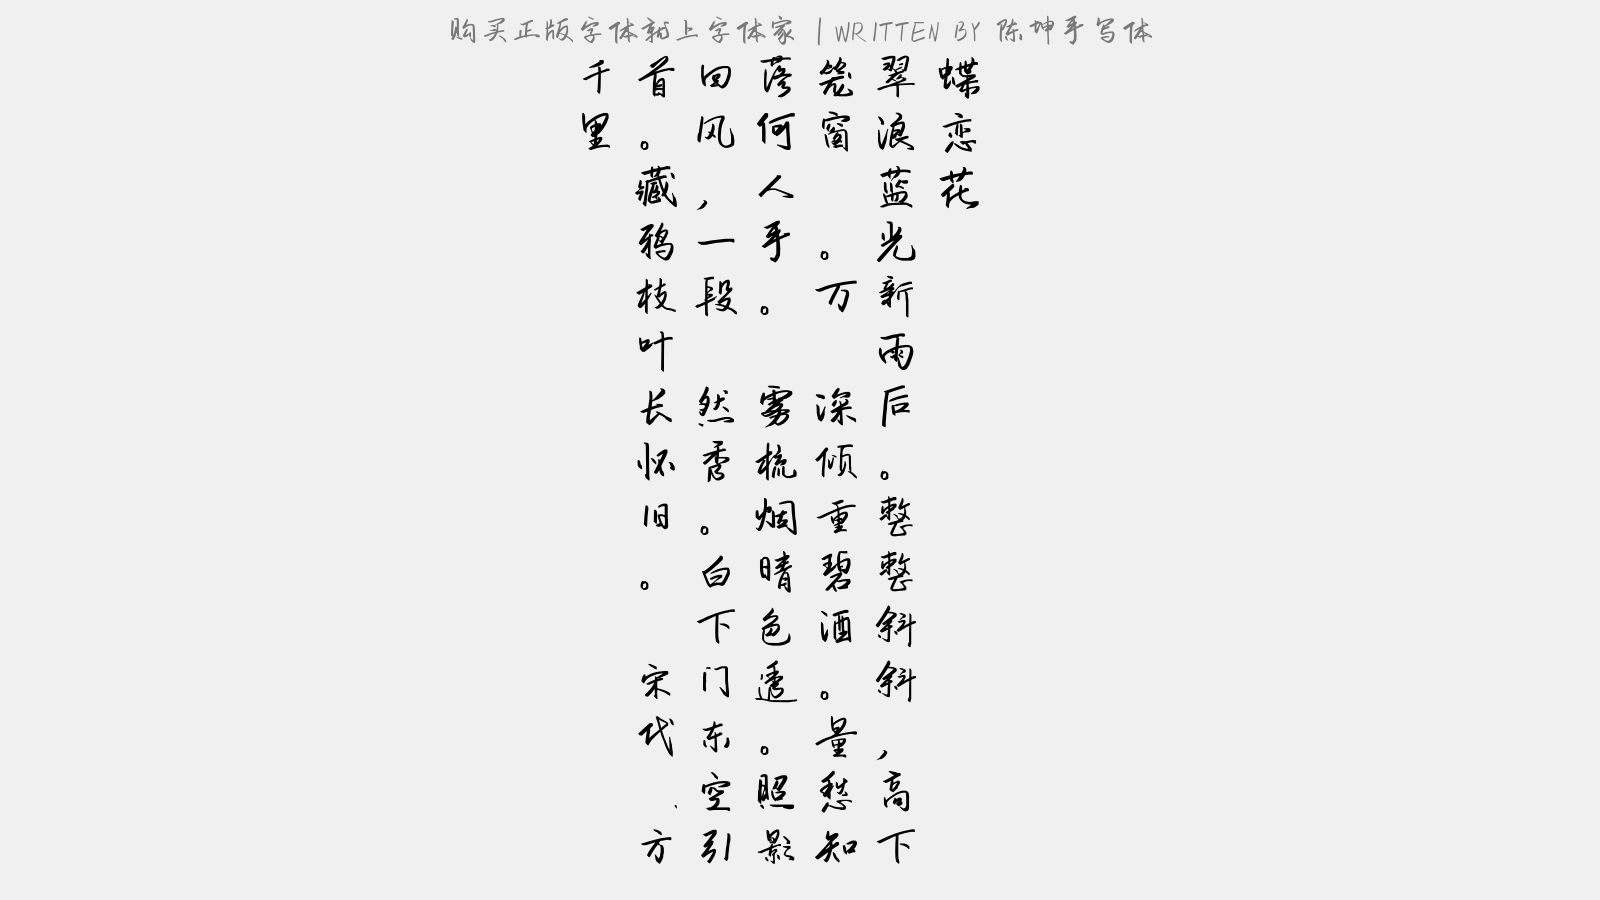 购买正版字体就上字体家 | WRITTEN BY 陈坤手写体
蝶恋花
翠浪蓝光新雨后。整整斜斜，高下
笼窗 。万 深倾重碧酒。量愁知
落何人手。 雾梳烟晴色透。照影
回风，一段 然秀。白下门东空引
首。藏鸦枝叶长怀旧。 宋代 · 方
千里